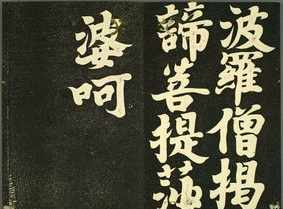 波羅僧揭
諦菩提莎
婆呵